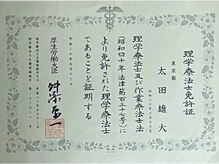 理学療法士免許証
東京都
太田雄大
理学療法士及び作業療法士法
(昭和四十年法律第百三十七号)に
より免許された理学療法士
であることを証明する
厚生労働大臣